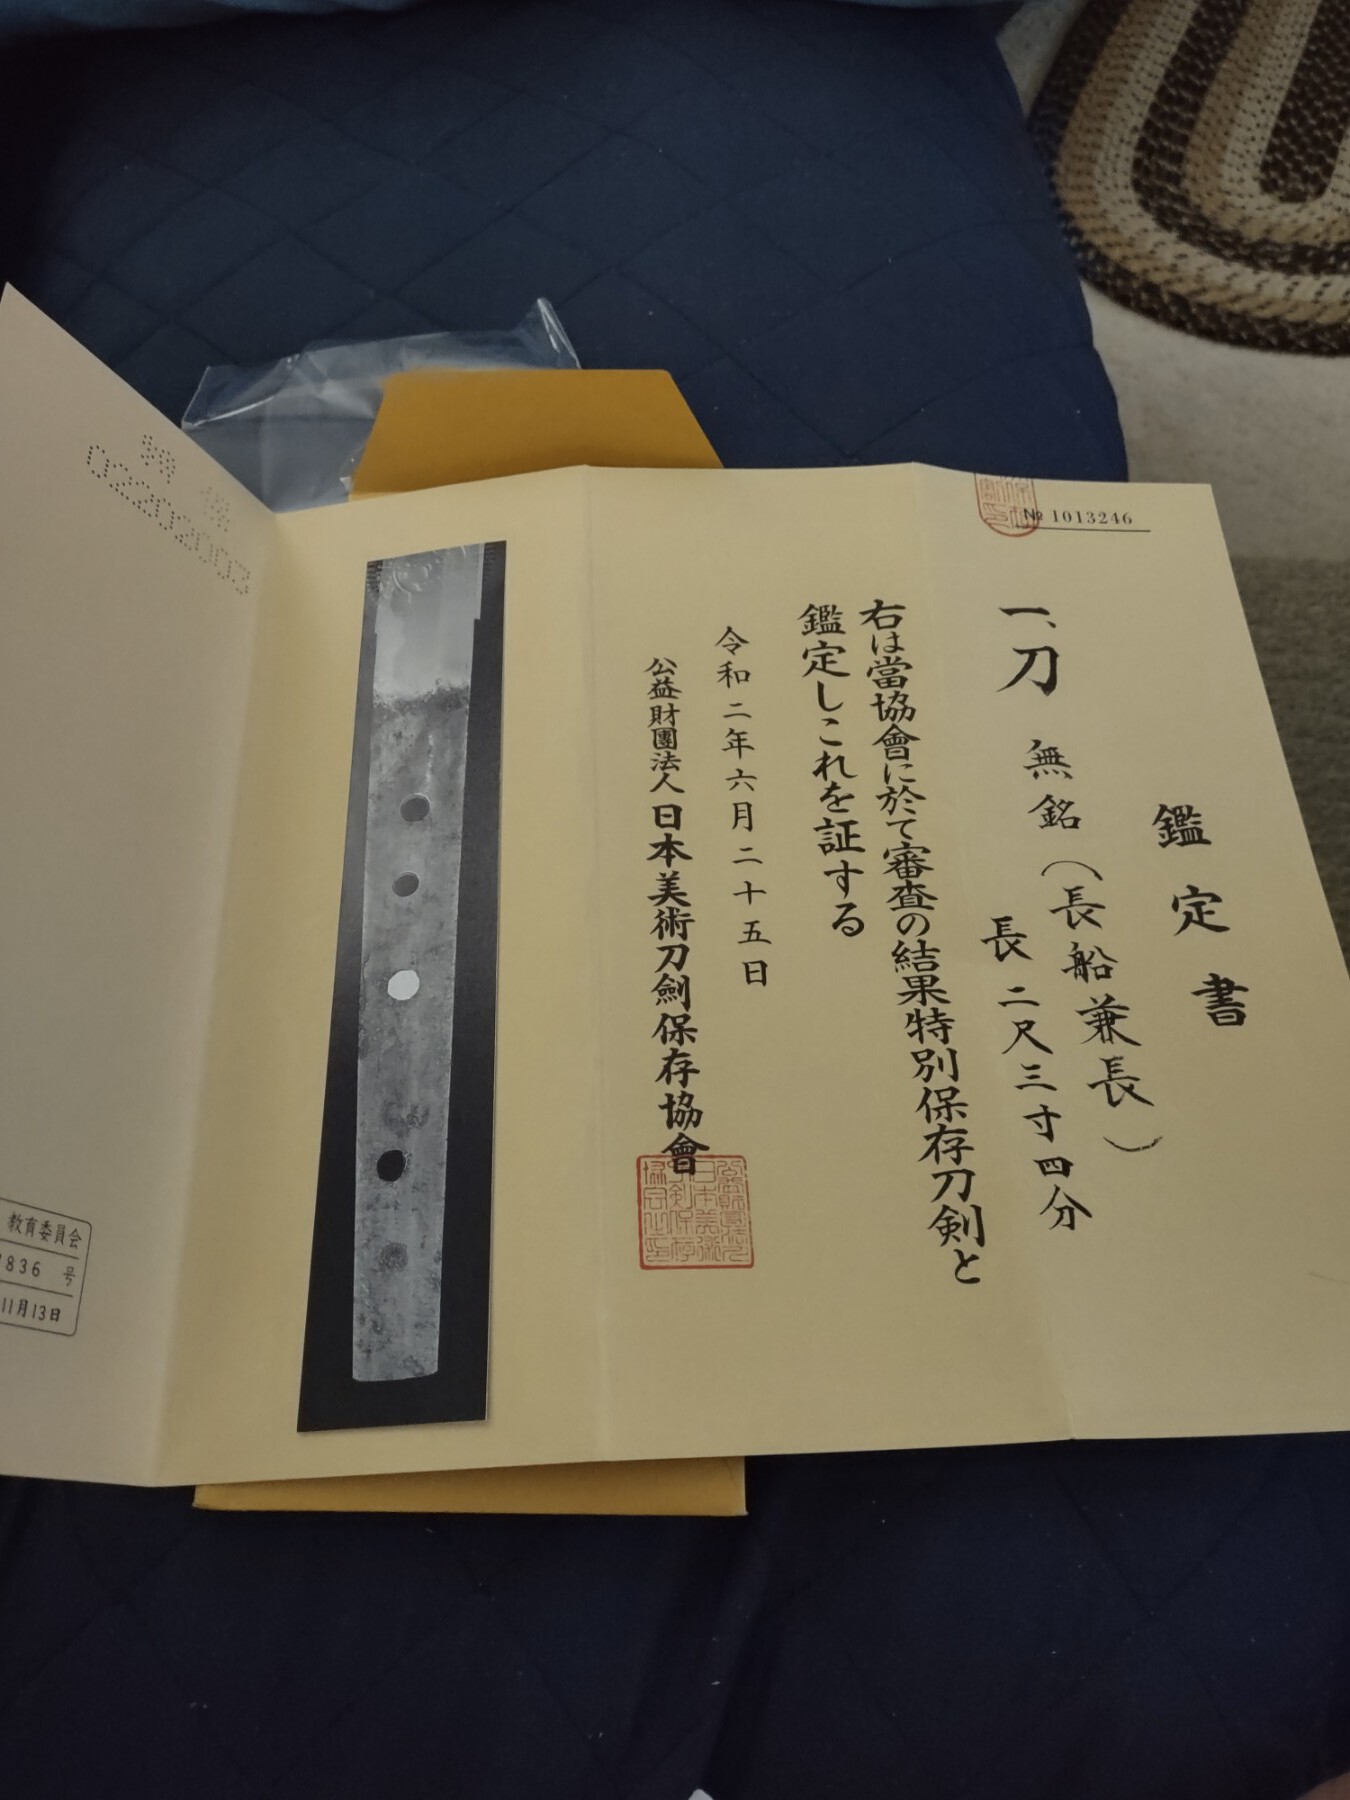 № 1013246
鑑定書
一、刀 無銘(長船兼長)
長二尺三寸四分
右は當協會に於て審査の結果特別保存刀剣と
鑑定しこれを証する
令和二年六月二十五日
公益財團法人 日本美術刀劍保存協會
0220203
教育委員会
836 号
11月13日